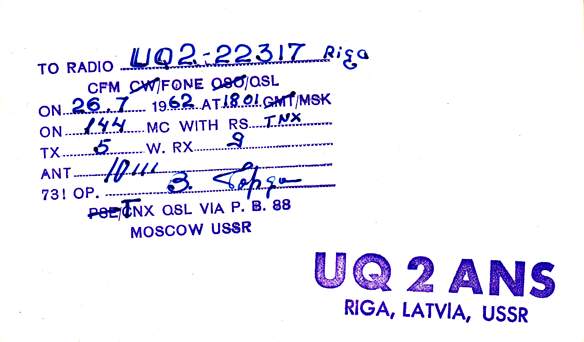 TO RADIO UQ2-22317 Riga
CFM CW/FONE QSO/QSL
ON 26.7 1962 AT 1801 GMT/MSK
ON 144 MC WITH RS TNX
TX 5 W. RX 9
ANT
73! OP. З.
PSE/TNX QSL VIA P. B. 88
MOSCOW USSR
UQ 2 ANS
RIGA, LATVIA, USSR